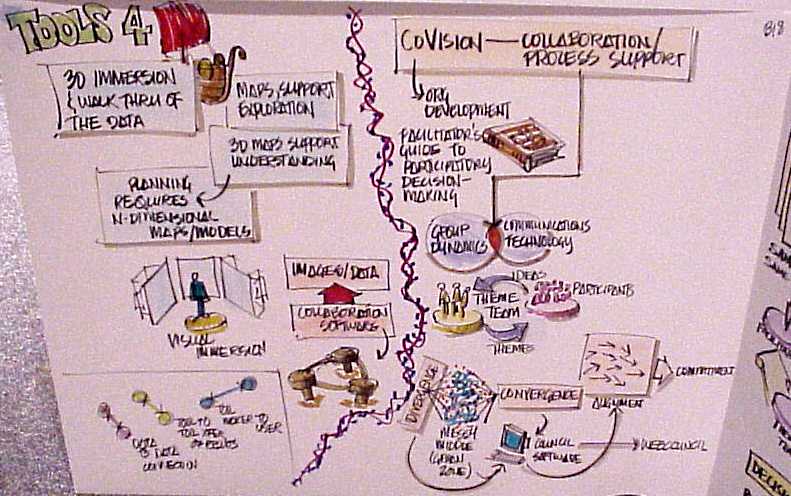 TOOLS 4
3D IMMERSION
& WALK THRU OF
THE DATA
MAPS, SUPPORT
EXPLORATION
3D MAPS SUPPORT
UNDERSTANDING
PLANNING
REQUIRES
N-DIMENSIONAL
MAPS/MODELS
VISUAL
IMMERSION
IMAGES/DATA
COLLABORATION
SOFTWARE
DATA
TO DATA
CONNECTION
TOOL TO
TOOL
OF RESULTS
TOOL
MAKER TO
USER
COVISION — COLLABORATION/
PROCESS SUPPORT
ORG
DEVELOPMENT
FACILITATOR'S
GUIDE TO
PARTICIPATORY
DECISION-
MAKING
GROUP
DYNAMICS
COMMUNICATIONS
TECHNOLOGY
IDEAS
THEME
TEAM
PARTICIPANTS
THEMES
DIVERGENCE
MESSY
MIDDLE
(GROAN
ZONE)
CONVERGENCE
COUNCIL
SOFTWARE
WEBCOUNCIL
ALIGNMENT
COMMITMENT